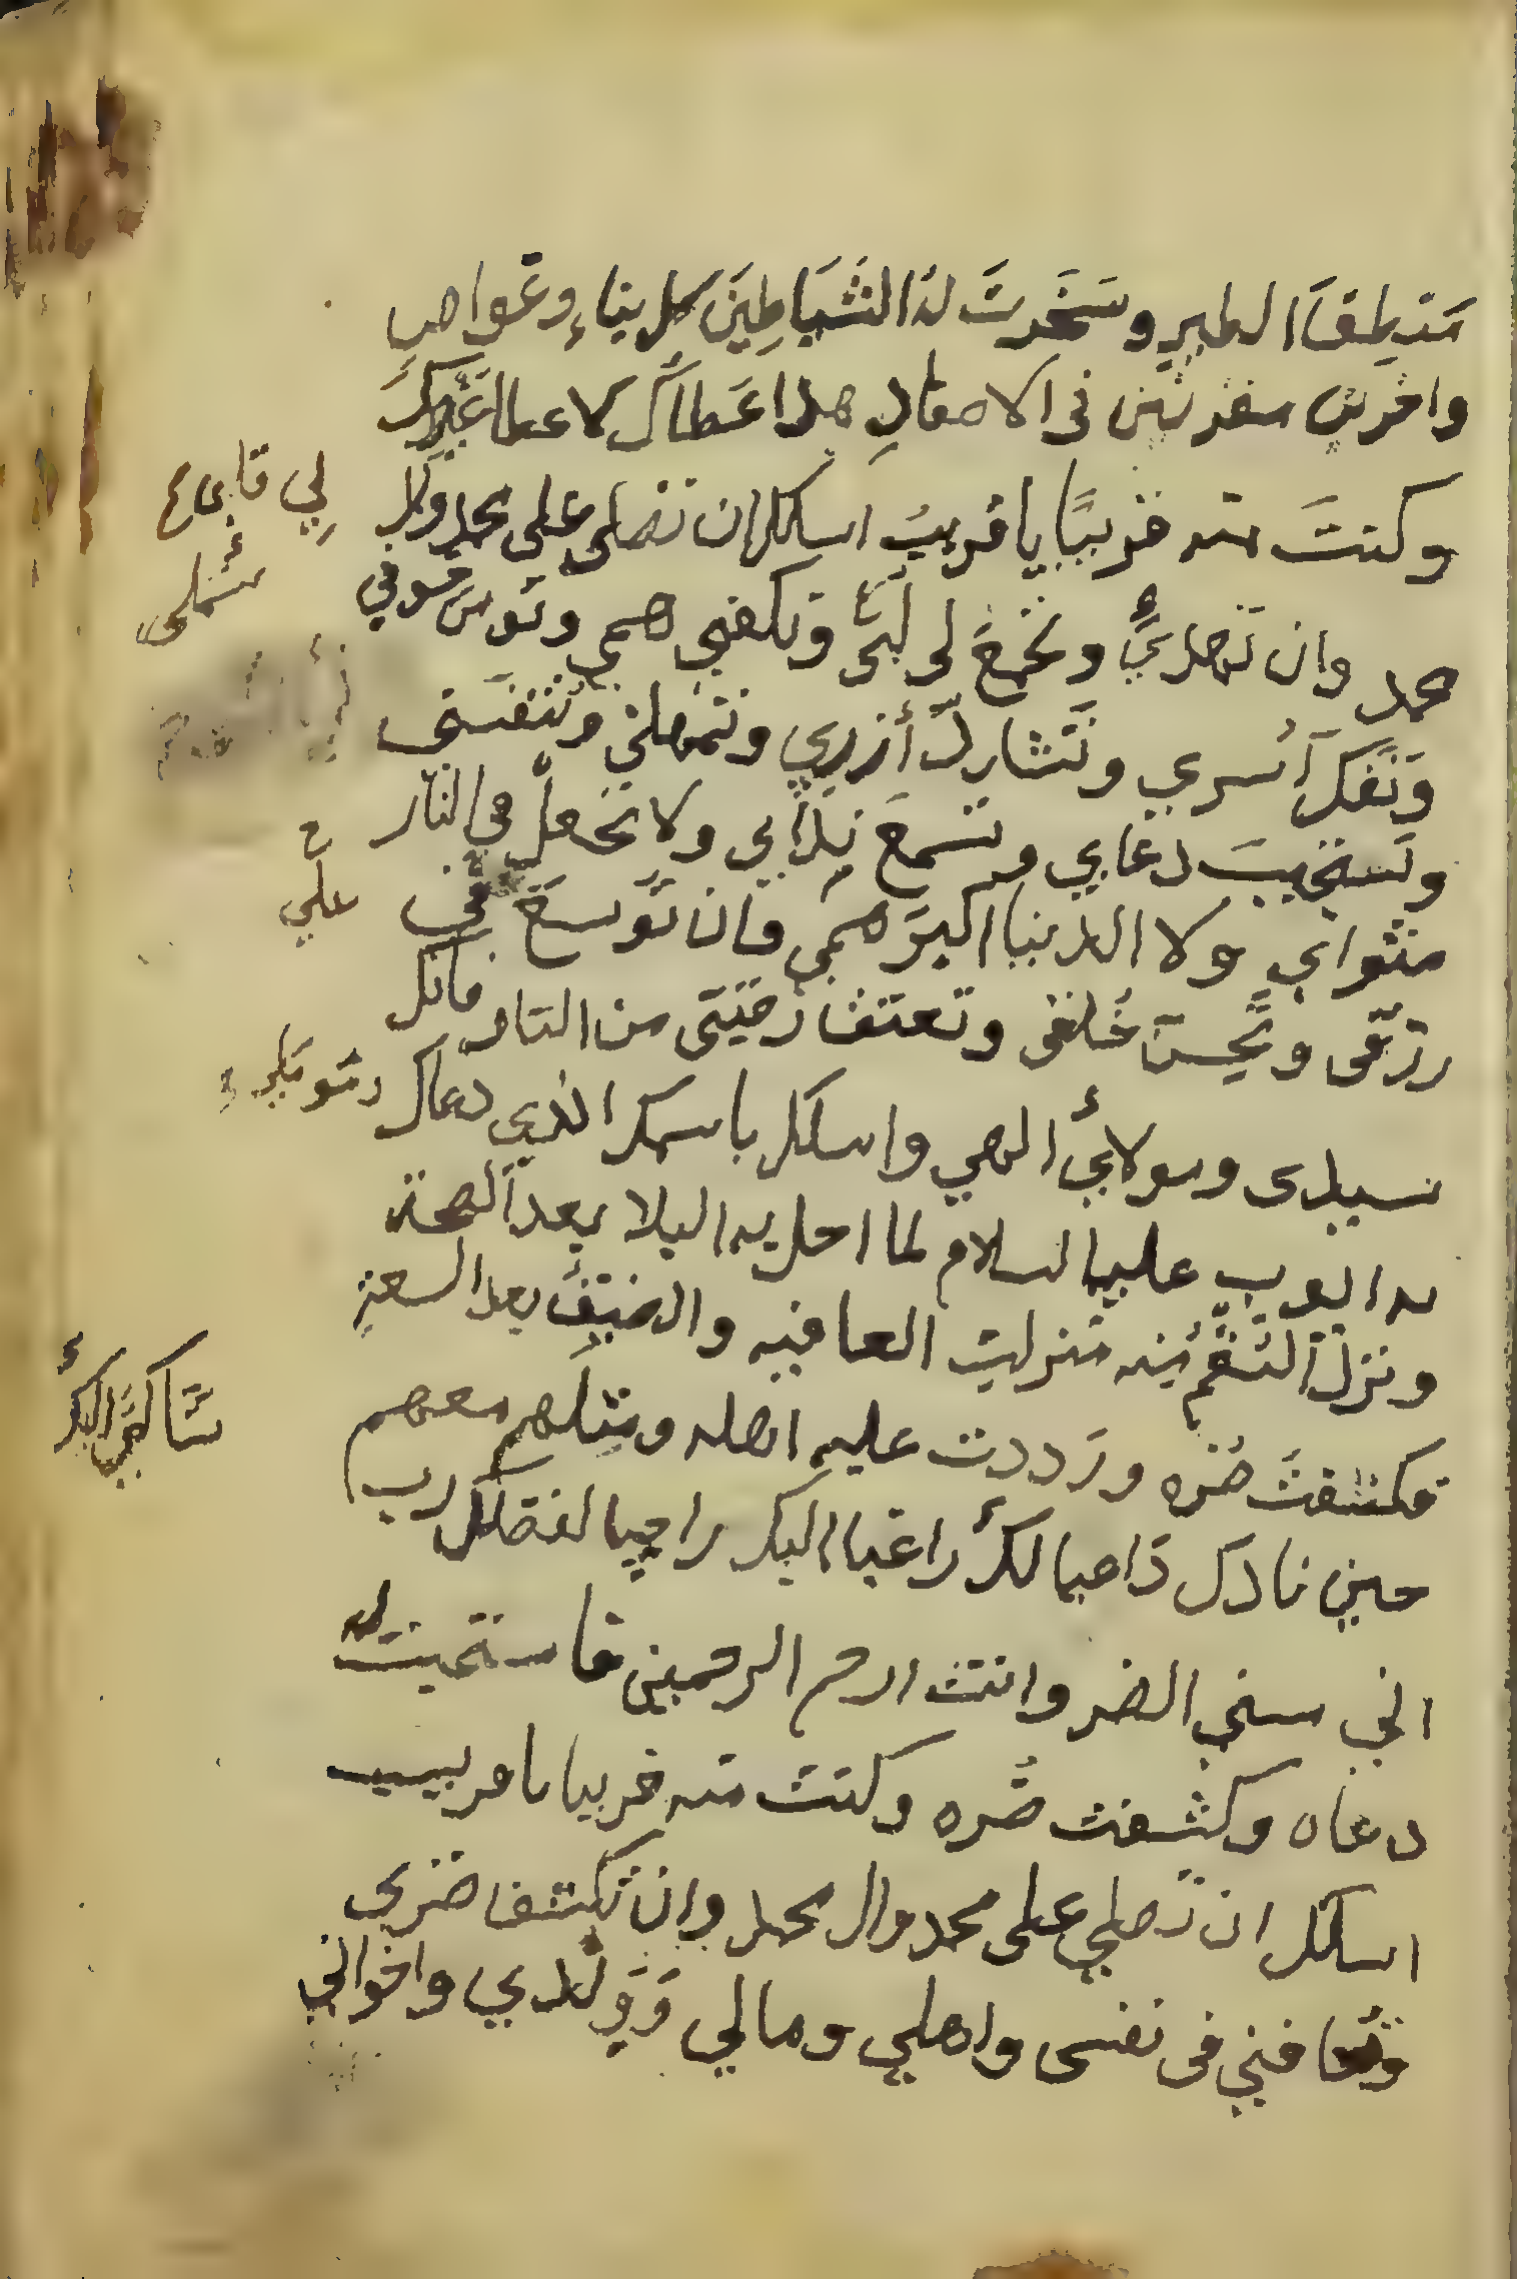 منطق الطير وسخرت له الشياطين كل بناء وغواص
واخرين مقرنين في الاصفاد هذا عطاك لا عطا غيرك
وكنت منه قريبًا يا قريب اسالك ان تصلي على محمد وال
محمد وان تهدي وتجمع لي لبي وتكفني همي وتومن خوفي
وتفك أسري وتشد أزري وتمهلني وتنفسني
وتستجيب دعاي وتسمع نداي ولا تجعل في النار
مثواي ولا الدنيا اكبر همي وان توسع في
رزقي وتحسن خلقي وتعتق رقبتي من النار فانك
سيدي ومولاي الهي واسالك باسمك الذي دعاك
به ايوب عليه السلام لما احل به البلا بعد الصحة
ونزل السقم منه منزلت العافيه والضيق بعد السعة
فكشفت ضره ورددت عليه اهله ومثلهم معهم
حين ناداك داعيا لك راغبا اليك راجيا لفضلك رب
اني مسني الضر وانت ارحم الرحمين فاستجبت له
دعاه وكشفت ضره وكنت منه قريبا يا قريب
اسالك ان تصلي على محمد وال محمد وان تكشف ضري
وتعافني في نفسي واهلي ومالي وولدي واخواني
لي قلبي
شملي
علي
ومؤملي
شاكيا اليك